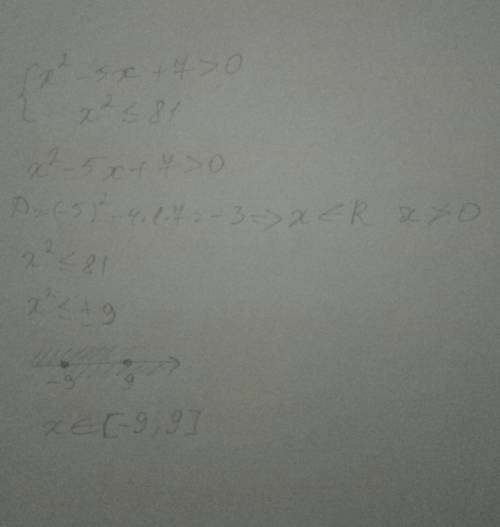 {x² - 5x + 7 > 0
x² ≤ 81
x² - 5x + 7 > 0
D = (-5)² - 4·1·7 = -3 => x ∈ R x > 0
x² ≤ 81
x² ≤ ± 9
-9 9
x ∈ [-9; 9]